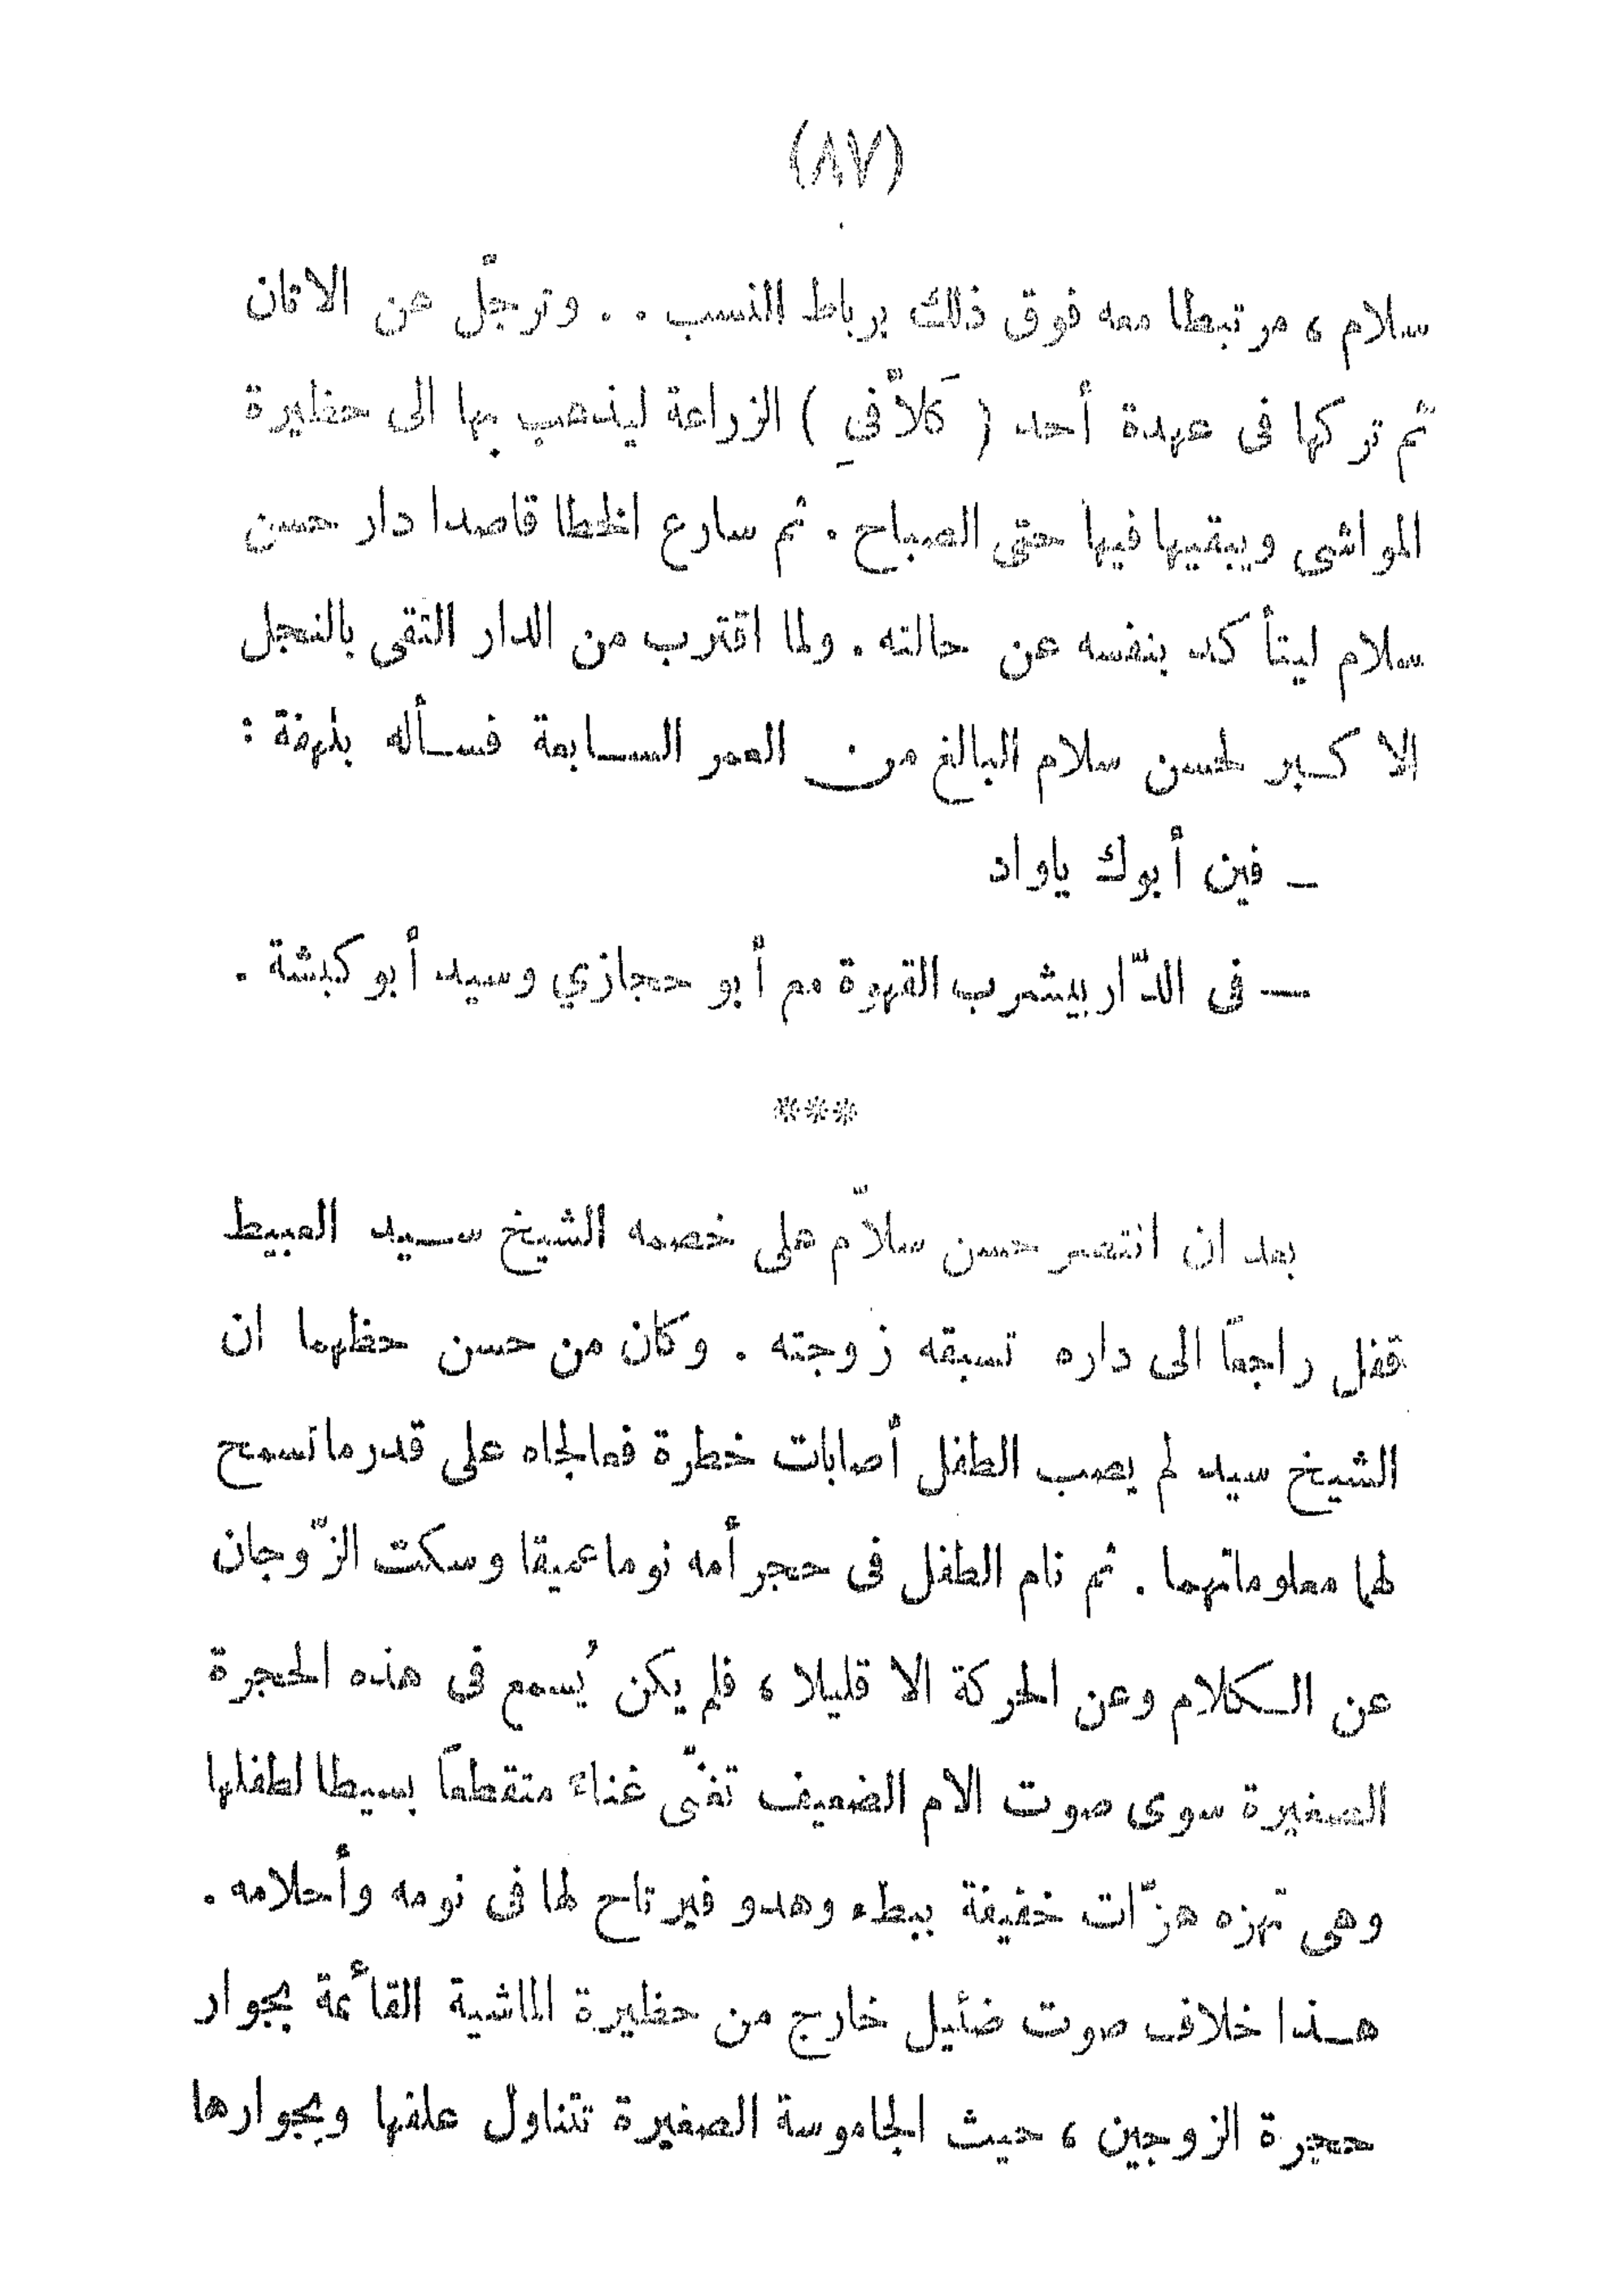 (٨٧)
سلام ، مرتبطا معه فوق ذلك برباط النسب . . وترجّل عن الاتان
ثم تركها فى عهدة أحد ( كَلاّفىِ ) الزراعة ليذهب بها الى حظيرة
المواشى ويبقيها فيها حتى الصباح . ثم سارع الخطا قاصدا دار حسن
سلام ليتأكد بنفسه عن حالته . ولما اقترب من الدار التقى بالنجل
الاكبر لحسن سلام البالغ من العمر السابعة فسأله بلهفة :
ـ فين أبوك ياواد
— فى الدّار بيشرب القهوة مع أبو حجازي وسيد أبو كبشة .
***
بعد ان انتصر حسن سلاّم على خصمه الشيخ سيد العبيط
قفل راجعاً الى داره تسبقه زوجته . وكان من حسن حظهما ان
الشيخ سيد لم يصب الطفل أصابات خطرة فعالجاه على قدر ماتسمح
لهما معلوماتهما . ثم نام الطفل فى حجر أمه نوما عميقا وسكت الزّوجان
عن الكلام وعن الحركة الا قليلا ، فلم يكن يُسمع فى هذه الحجرة
الصغيرة سوى صوت الام الضعيف تغنّى غناء متقطعاً بسيطا لطفلها
وهى تهزه هزّات خفيفة ببطء وهدو فيرتاح لها فى نومه وأحلامه .
هذا خلاف صوت ضئيل خارج من حظيرة الماشية القائمة بجوار
حجرة الزوجين ، حيث الجاموسة الصغيرة تتناول علفها وبجوارها